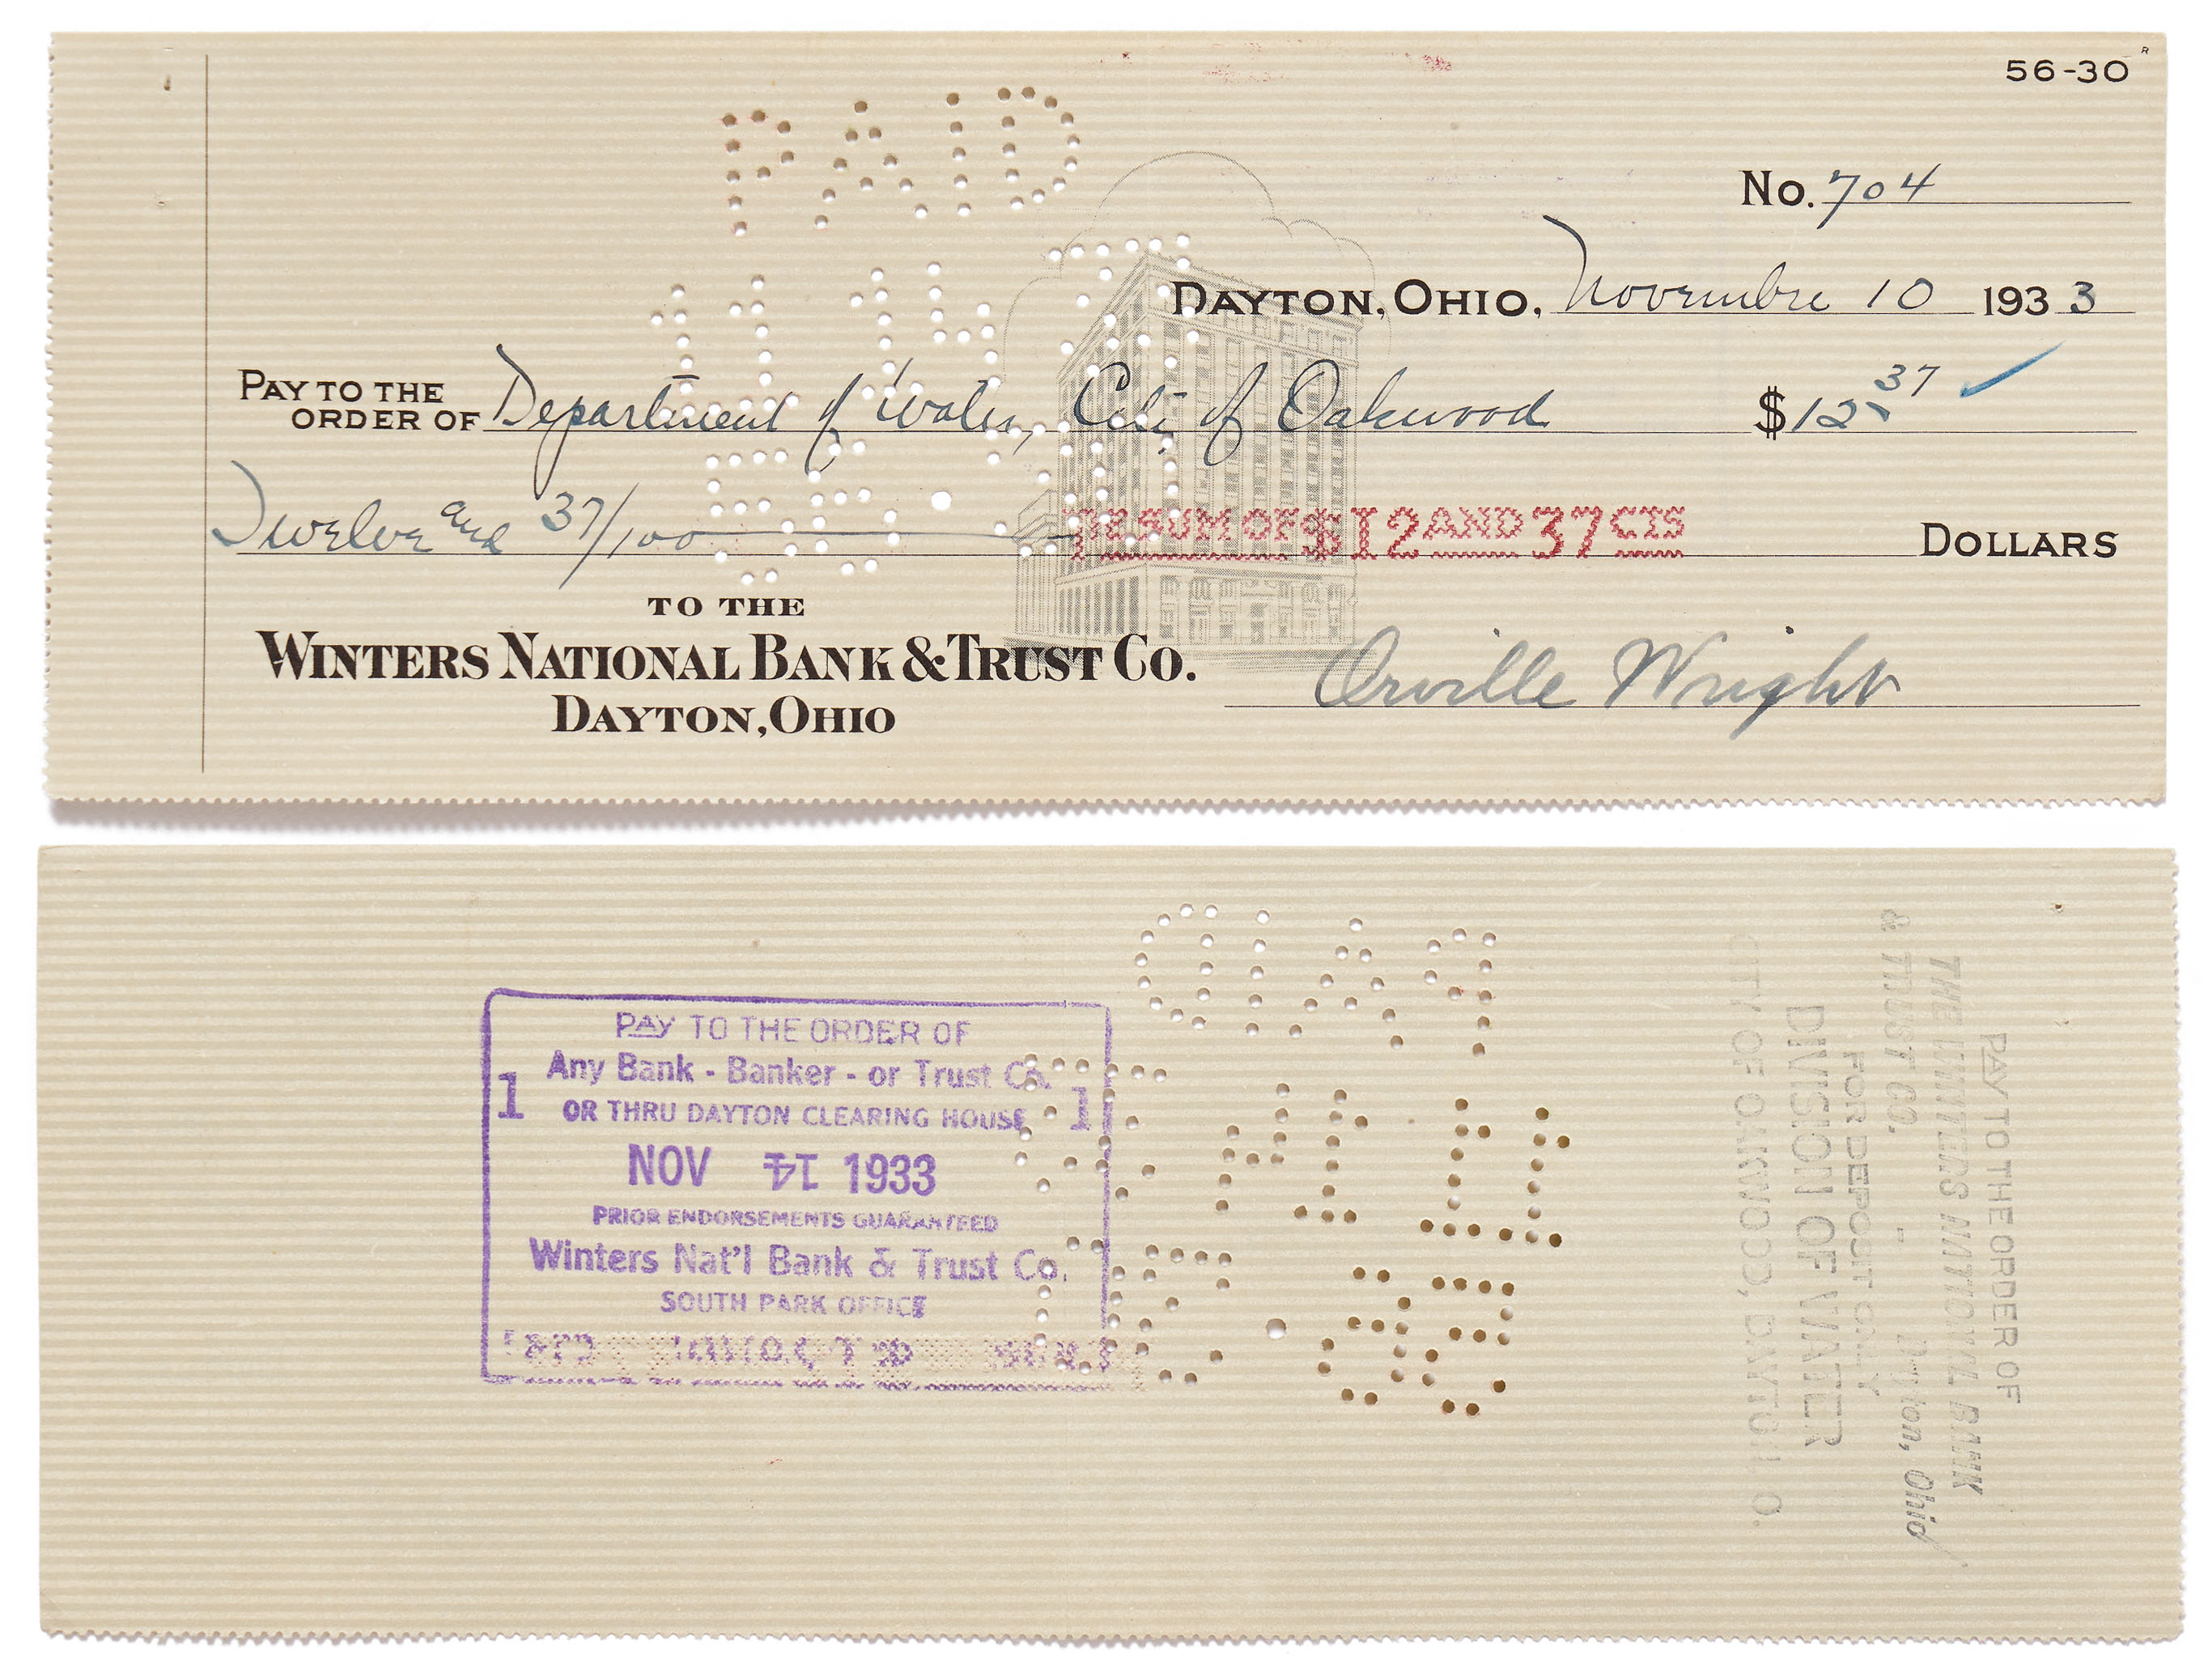 56-30
R
No. 704
DAYTON, OHIO, November 10 1933
PAID
11 14 33
PAY TO THE ORDER OF Department of Water, City of Oakwood $12 37
Twelve and 37/100 THE SUM OF $12 AND 37 CTS DOLLARS
TO THE
WINTERS NATIONAL BANK & TRUST CO.
DAYTON, OHIO
Orville Wright
PAY TO THE ORDER OF
Any Bank - Banker - or Trust Co.
1 OR THRU DAYTON CLEARING HOUSE 1
NOV 14 1933
PRIOR ENDORSEMENTS GUARANTEED
Winters Nat'l Bank & Trust Co.
SOUTH PARK OFFICE
PAY TO THE ORDER OF
THE WINTERS NATIONAL BANK
& TRUST CO. - - Dayton, Ohio
FOR DEPOSIT ONLY
DIVISION OF WATER
CITY OF OAKWOOD, DAYTON, O.